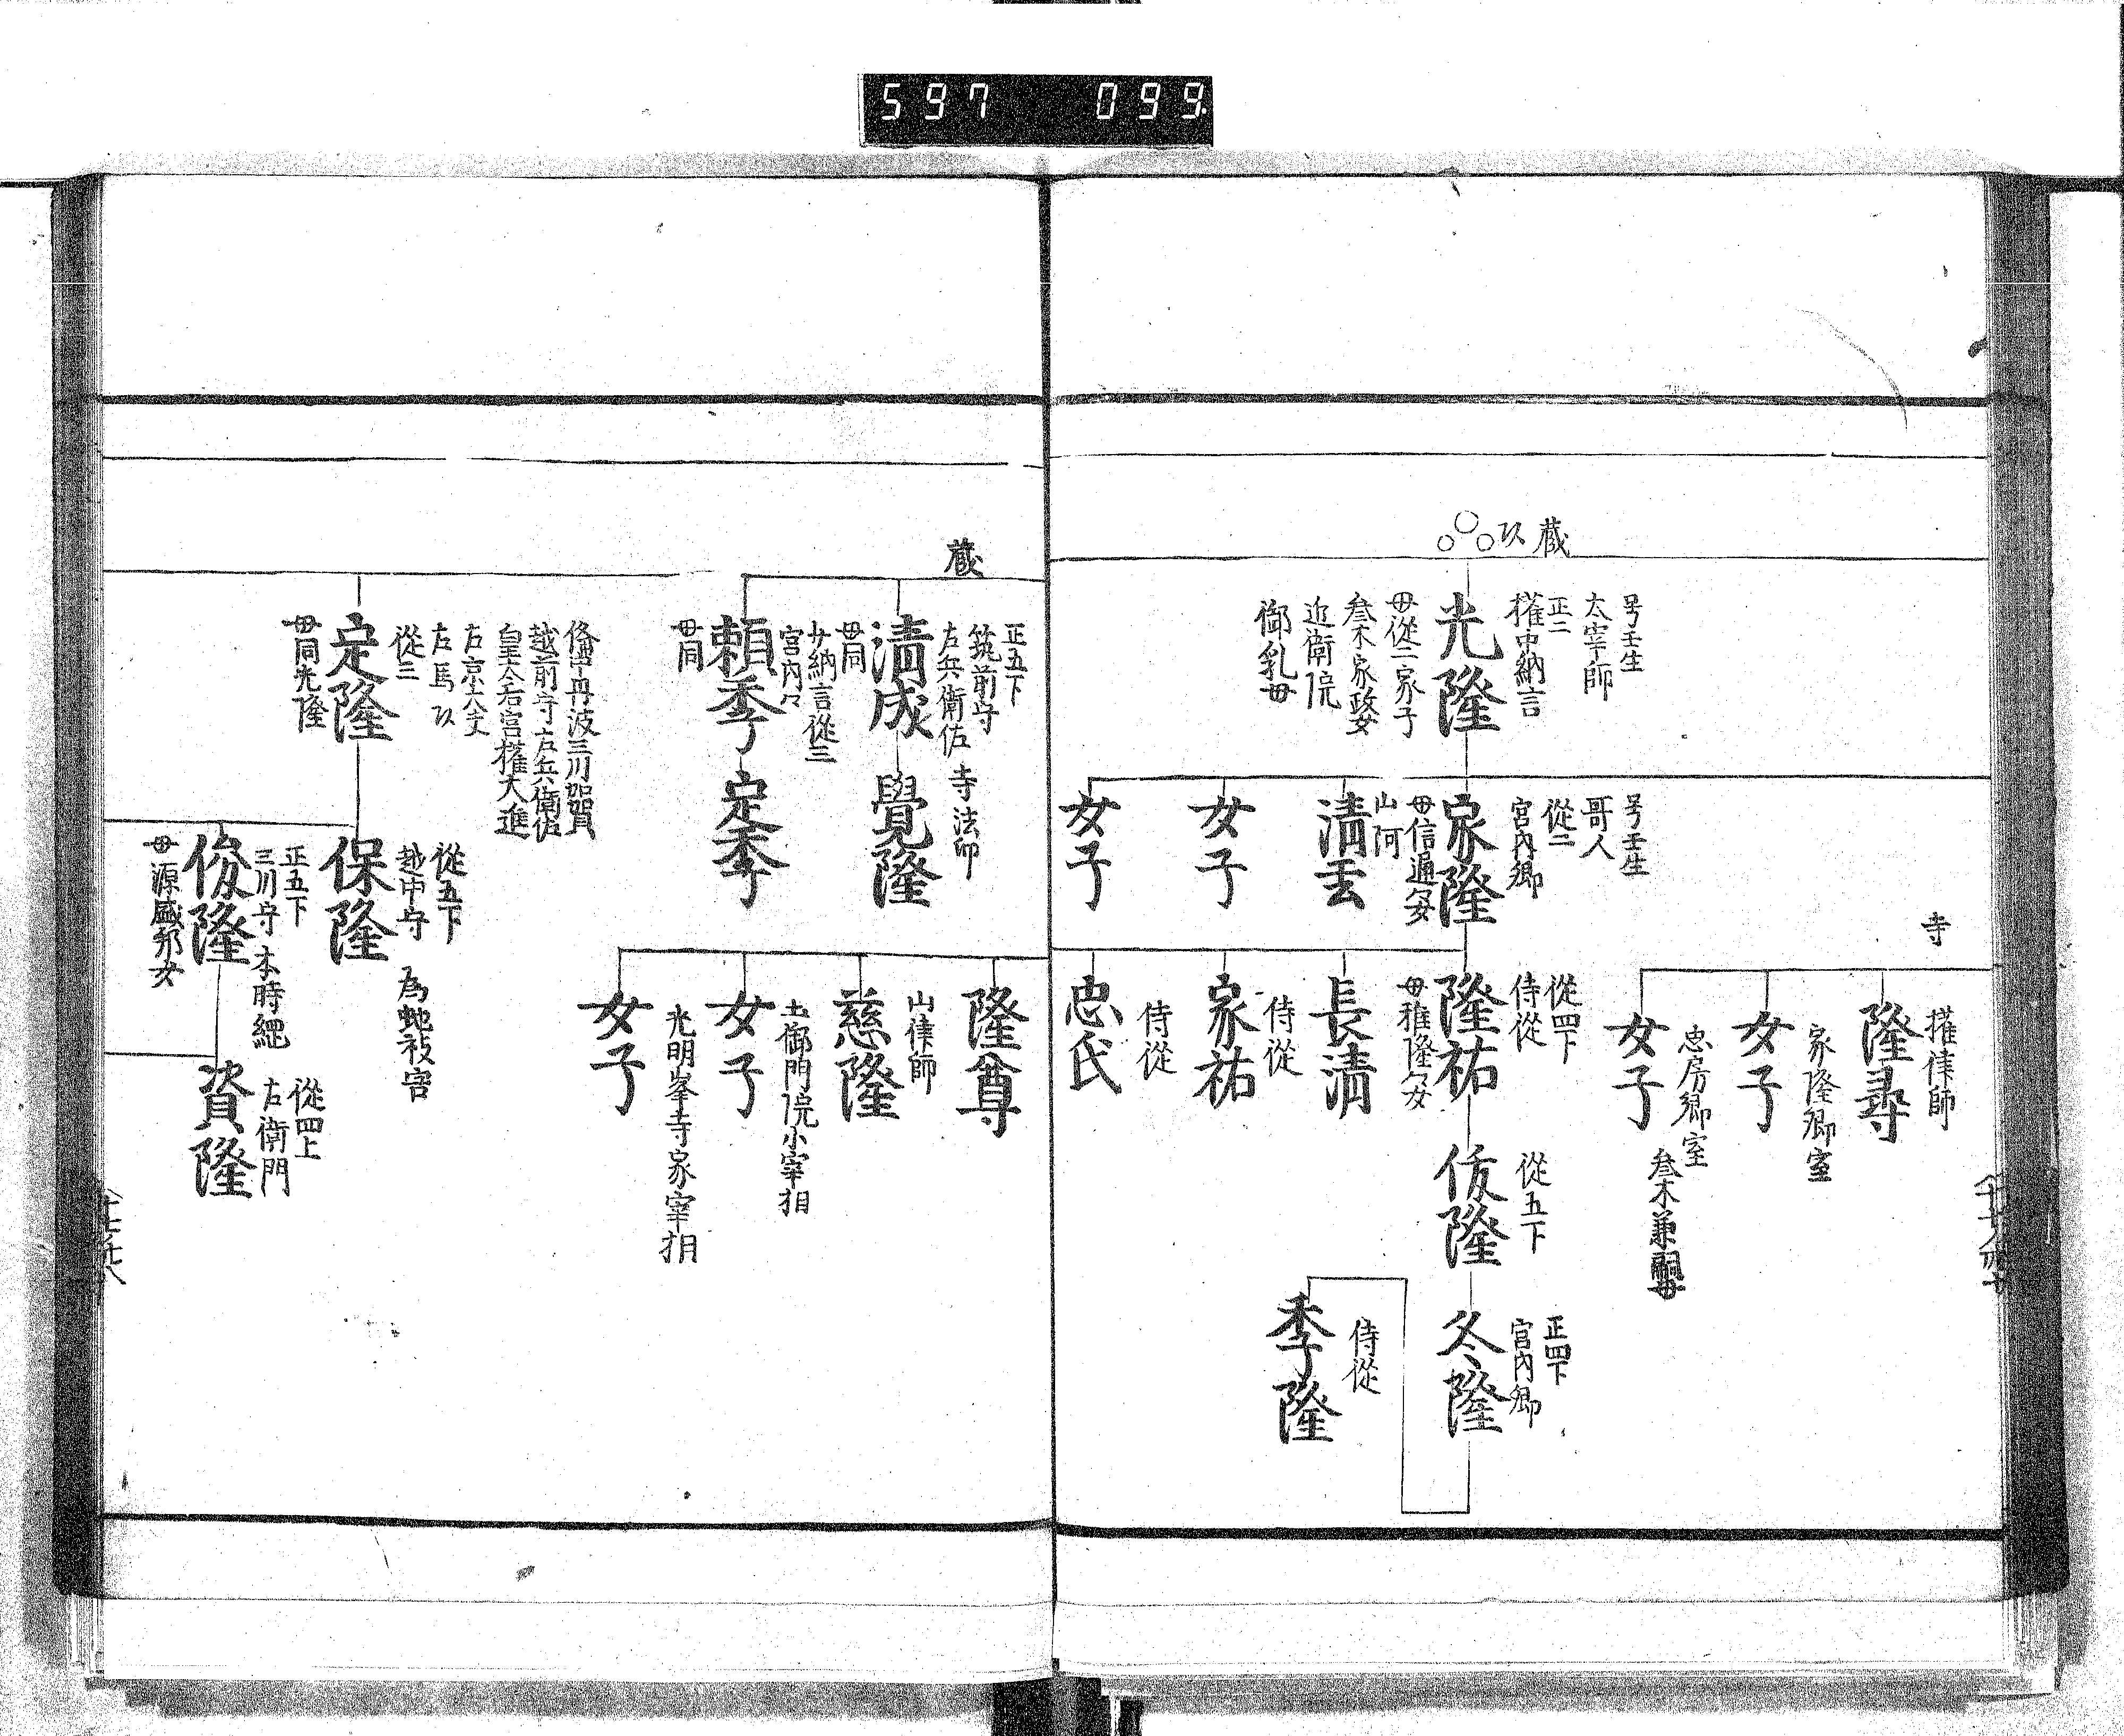 597 099
蔵
以
号壬生
太宰師
正二
権中納言
光隆
母從二家子
叄木家政女
近衛院
御乳母
号壬生
哥人
從二
宮内卿
家隆
母信通女
山阿
清
女子
女子
寺
権律師
隆尋
女子
家隆卿室
女子
忠房卿室
叄木兼嗣母
從四下
侍從
隆祐
母雅隆女
長清
家祐
侍從
忠氏
侍從
從五下
隆
正四下
宮内卿
冬隆
侍從
季隆
蔵
正五下
筑前守
左兵衛佐
清成
母同
寺法印
覺隆
少納言從三
宮内々
頼季
母同
定季
隆尊
山律師
慈隆
土御門院小宰相
女子
光明峯寺家宰相
女子
丹波三川加賀
越前守左兵衛佐
皇太后宮権大進
右京大夫
左馬以
從三
定隆
母同光隆
從五下
越中守
為蛇被害
保隆
正五下
三川守
本時綱
俊隆
母源盛邦女
從四上
左衛門
資隆